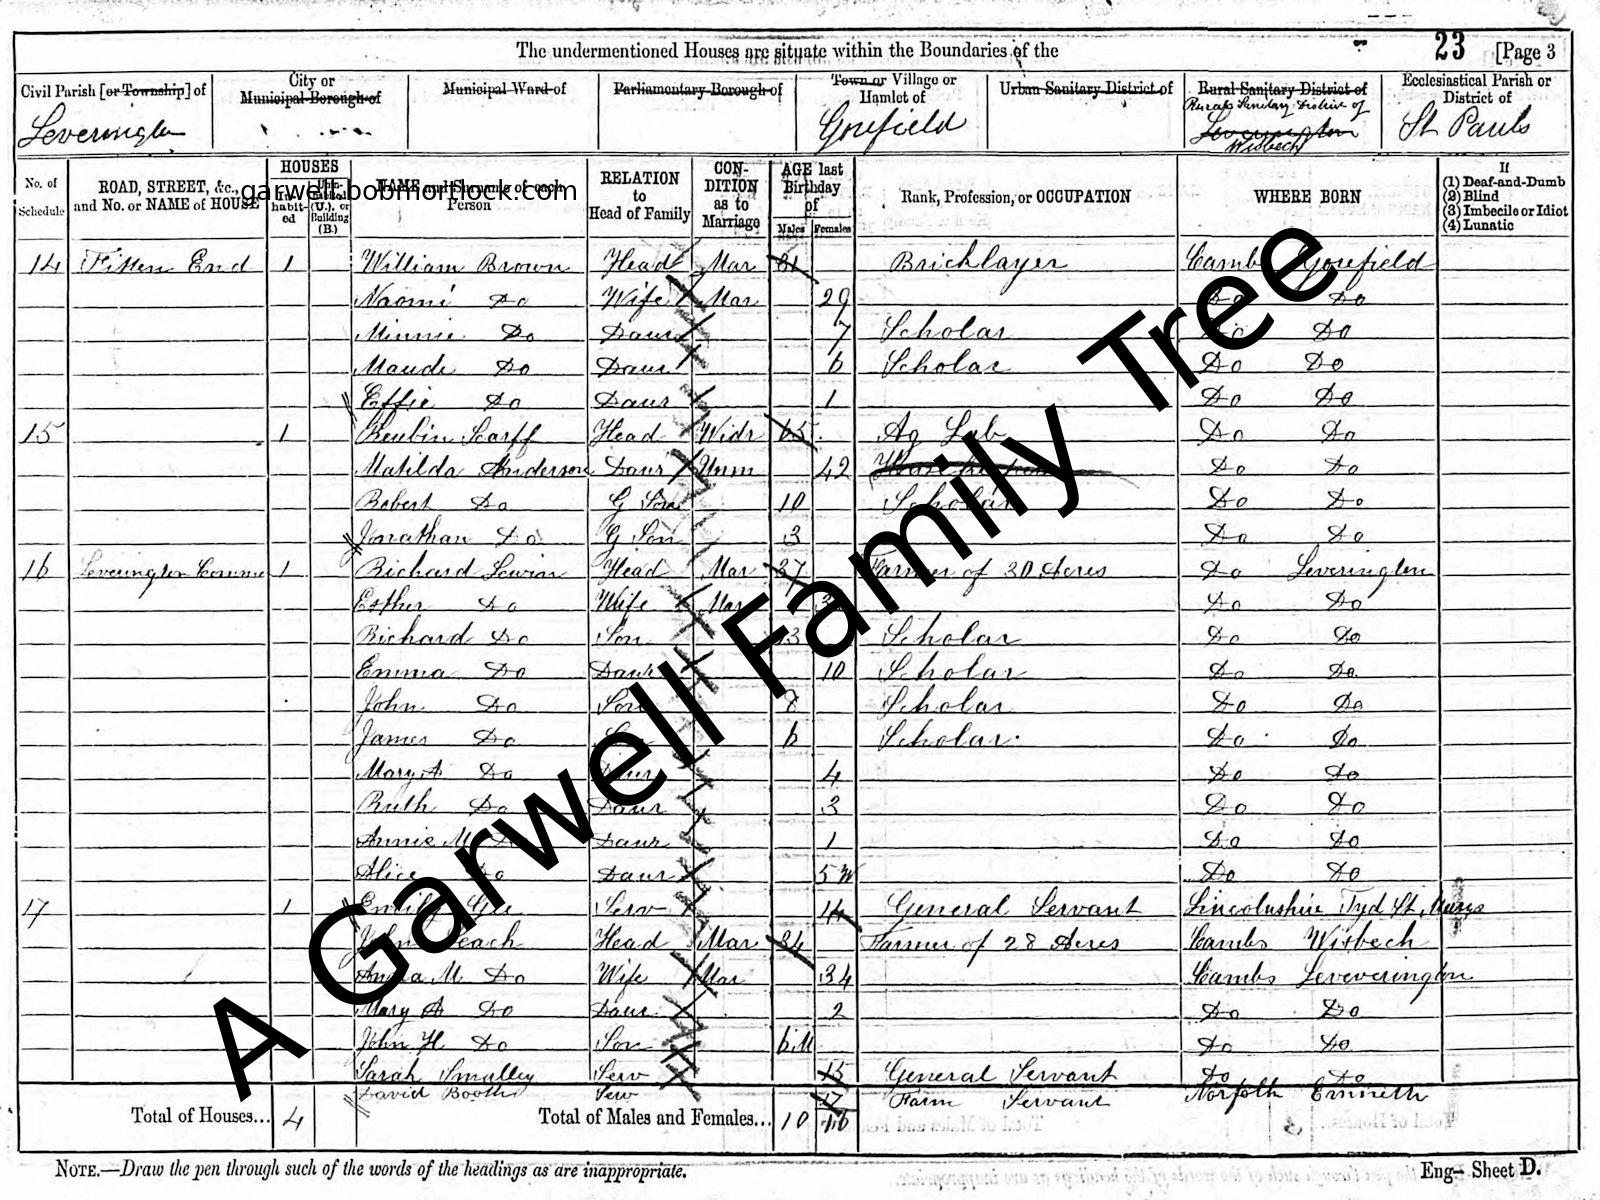 The undermentioned Houses are situate within the Boundaries of the 23 [Page 3
Civil Parish [or Township] of Leverington
City or Municipal Borough of
Municipal Ward of
Parliamentary Borough of
Town or Village or Hamlet of Gorefield
Urban Sanitary District of
Rural Sanitary District of Rural Sanitary District of Leverington Wisbech
Ecclesiastical Parish or District of St Pauls
No. of Schedule
ROAD, STREET, &c., and No. or NAME of HOUSE
HOUSES
In-habit-ed
Un-inhabited (U.), or Building (B.)
NAME and Surname of each Person
RELATION to Head of Family
CON-DITION as to Marriage
AGE last Birthday of
Males Females
Rank, Profession, or OCCUPATION
WHERE BORN
If
(1) Deaf-and-Dumb
(2) Blind
(3) Imbecile or Idiot
(4) Lunatic
garwell.bobmorflock.com
14 Fitten End 1 William Brown Head Mar 31 Bricklayer Cambs Gorefield
Naomi Do Wife Mar 29 Do Do
Minnie Do Daur 7 Scholar Do Do
Maude Do Daur 6 Scholar Do Do
Effie Do Daur 1 Do Do
15 1 Reubin Scarff Head Widr 65 Ag Lab Do Do
Matilda Anderson Daur Unm 42 Do Do
Robert Do G Son 10 Scholar Do Do
Jonathan Do G Son 3 Do Do
16 Leverington Comme 1 Richard Lewin Head Mar 37 Farmer of 30 Acres Do Leverington
Esther Do Wife Mar Do Do
Richard Do Son 13 Scholar Do Do
Emma Do Daur 10 Scholar Do Do
John Do Son 8 Scholar Do Do
James Do 6 Scholar Do Do
Mary A Do Daur 4 Do Do
Ruth Do Daur 3 Do Do
Annie M Do Daur 1 Do Do
Alice Do Daur 5 W Do Do
17 1 Emily Gee Serv 14 General Servant Lincolnshire Tyd St Marys
John Peach Head Mar 34 Farmer of 28 Acres Cambs Wisbech
Anna M Do Wife Mar 34 Cambs Leveverington
Mary A Do Daur 2 Do Do
John H Do Son 6 M Do Do
Sarah Smalley Serv 15 General Servant Do Do
David Booth Serv 17 Farm Servant Norfolk Emneth
Total of Houses... 4 Total of Males and Females... 10 16
NOTE.—Draw the pen through such of the words of the headings as are inappropriate.
Eng— Sheet D.
A Garwell Family Tree